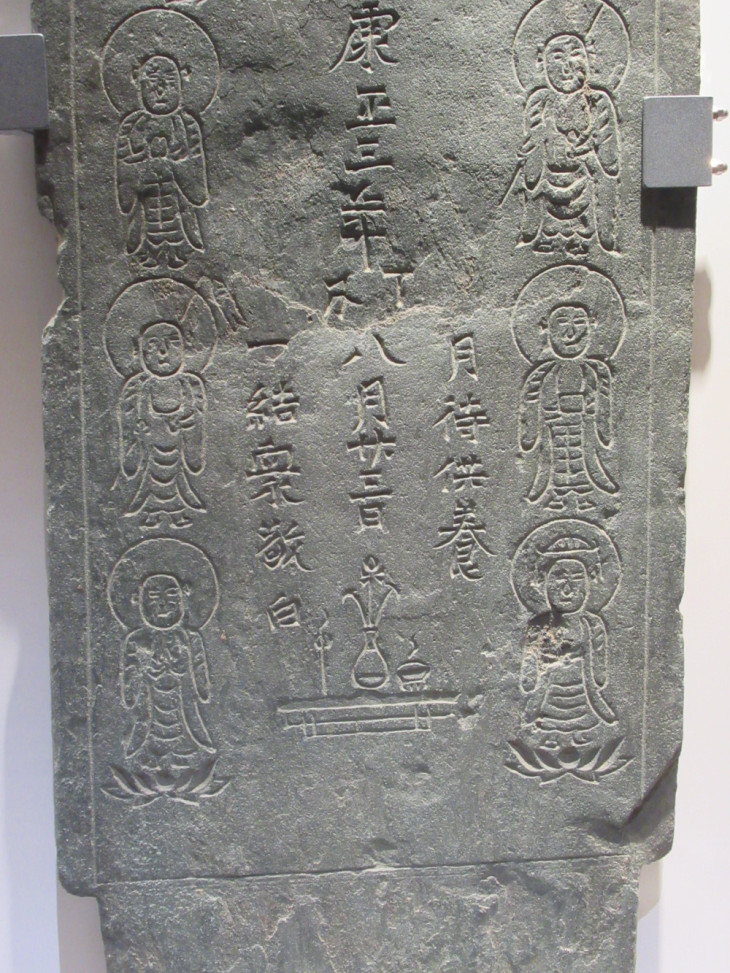 月待供養
康正三年丁丑八月廿三日
一結衆敬白